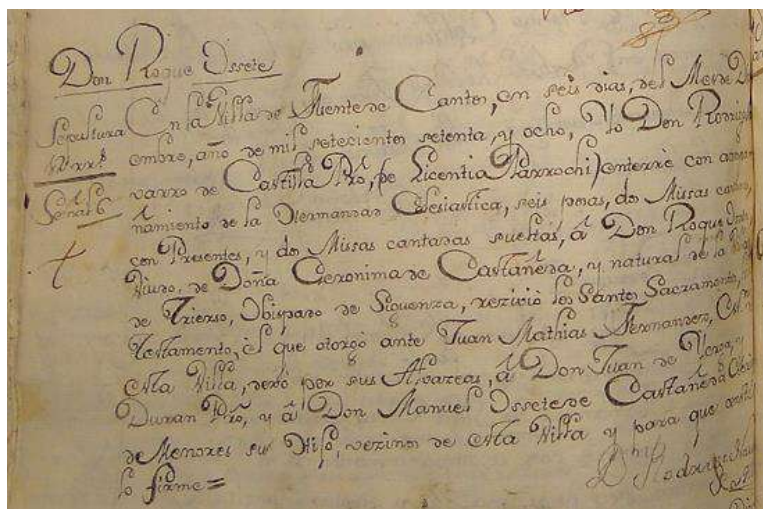 Don Roque Ossete
Sepultura
En la Villa de Fuente de Cantos, en seis dias, del Mes de D
embre, año de mil setecientos setenta, y ocho, Yo Don Rodrig
varro de Castilla Pro, (de Licentia Parrochi) enterré con acompa
ñamiento de la Hermandad Eclesiastica, seis posas, dos Missas cantadas,
con Presentes, y dos Missas cantadas sueltas, â Don Roque
Viudo, de Doña Geronima de Castañeda, y natural de la
de Trierso, Obispado de Siguenza, rezivió los Santos Sacramento,
Testamento, el que otorgó ante Juan Mathias Fernandez,
esta Villa, dexó por sus Alvazeas, â Don Juan de
Duran Pro, y â Don Manuel Ossete de Castañeda
de Menores su Hijo, vezinos de esta Villa y para que
lo firme =